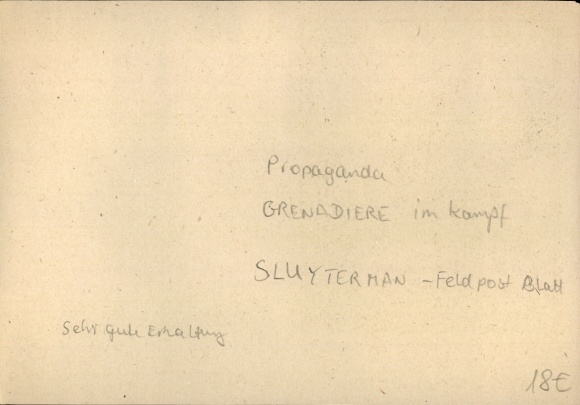 Propaganda
GRENADIERE im Kampf
SLUYTERMAN - Feldpost Blatt
Sehr gute Erhaltung
18€